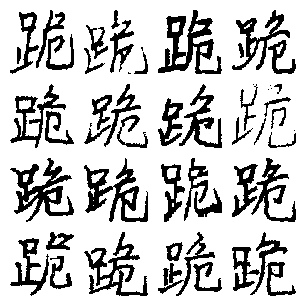 跪跪跪跪
跪跪跪跪
跪跪跪跪
跪跪跪跪